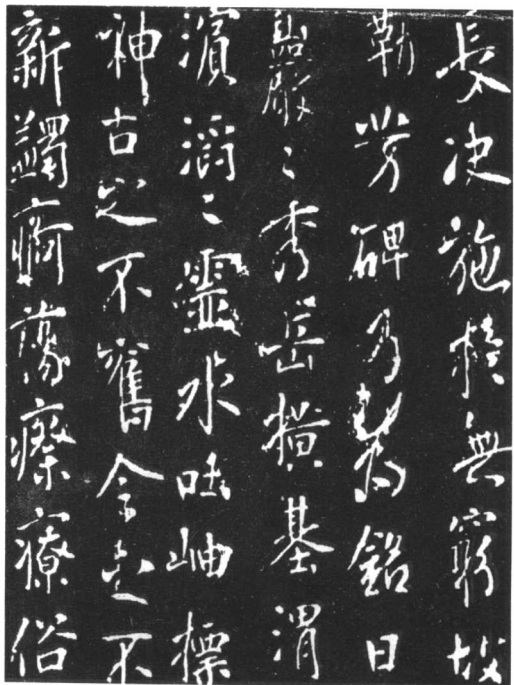 長决施於無窮故
勒茲碑乃為銘曰
巖〻秀岳橫基渭
濱滔〻靈水吐岫標
神古之不舊今之不
新蠲痾蕩瘵療俗